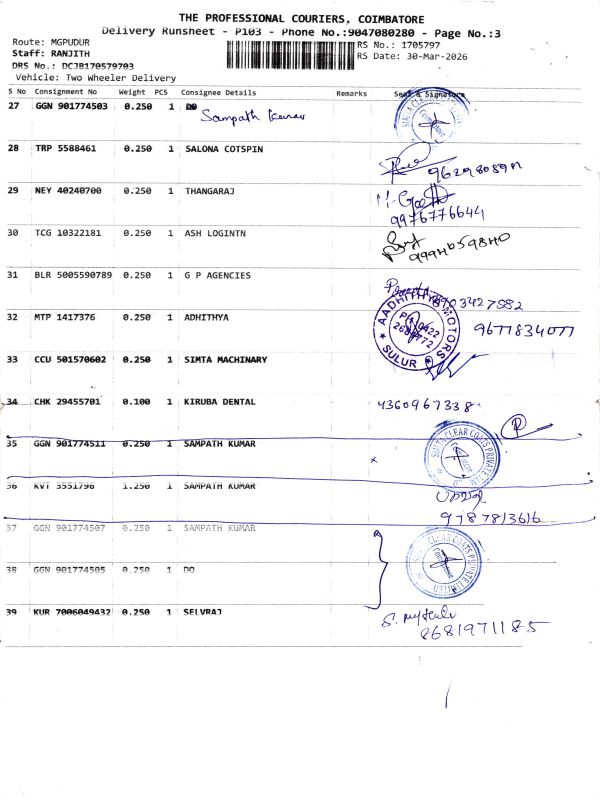 THE PROFESSIONAL COURIERS, COIMBATORE
Delivery Runsheet - P103 - Phone No.:9047080280 - Page No.:3
Route: MGPUDUR
RS No.: 1705797
Staff: RANJITH
RS Date: 30-Mar-2026
DRS No.: DCJB170579703
Vehicle: Two Wheeler Delivery
S No Consignment No Weight PCS Consignee Details Remarks Seal & Signature
27 GGN 901774503 0.250 1 DO
Sampath Kumar
28 TRP 5588461 0.250 1 SALONA COTSPIN
29 NEY 40240700 0.250 1 THANGARAJ
9976776644
30 TCG 10322181 0.250 1 ASH LOGINTN
31 BLR 5005590789 0.250 1 G P AGENCIES
32 MTP 1417376 0.250 1 ADHITHYA
AADHITHYA MOTORS
SULUR
9677834077
33 CCU 501570602 0.250 1 SIMTA MACHINARY
34 CHK 29455701 0.100 1 KIRUBA DENTAL
4360967338
35 GGN 901774511 0.250 1 SAMPATH KUMAR
SIMTA CLEAR COATS PRIVATE LIMITED
36 KVT 3551796 1.250 1 SAMPATH KUMAR
9787813616
37 GGN 901774507 0.250 1 SAMPATH KUMAR
CLEAR COATS PRIVATE LIMITED
38 GGN 901774505 0.250 1 DO
39 KUR 7006049432 0.250 1 SELVRAJ
8681971185